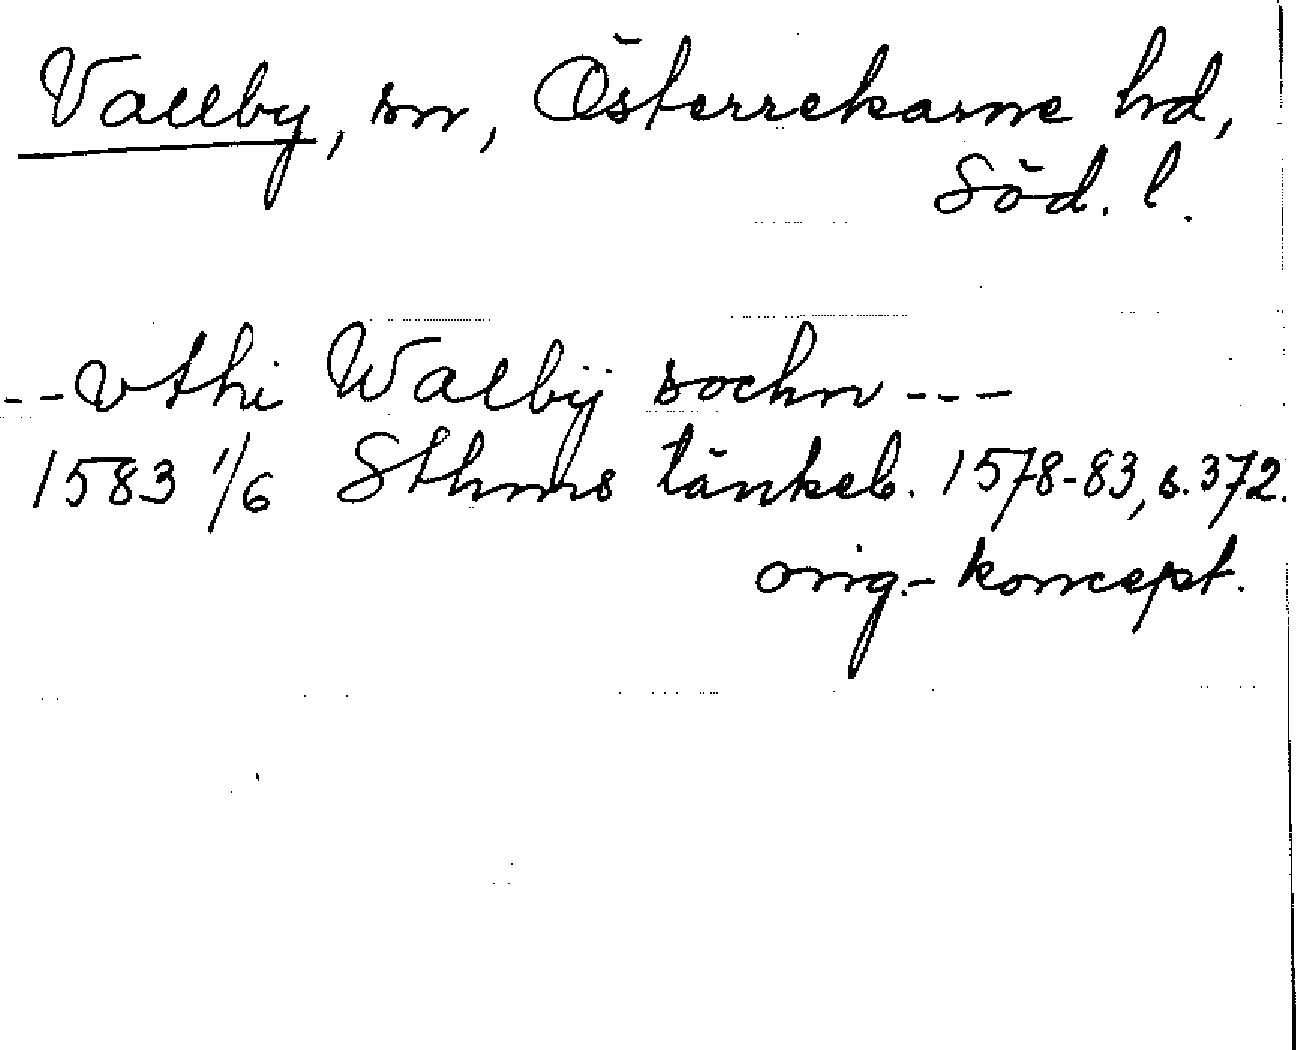 Vallby, sn, Österrekarne hd,
Söd. l.
--vthi Walbÿ sochn---
1583 1/6 Sthms tänkeb. 1578-83, s. 372.
orig.-koncept.